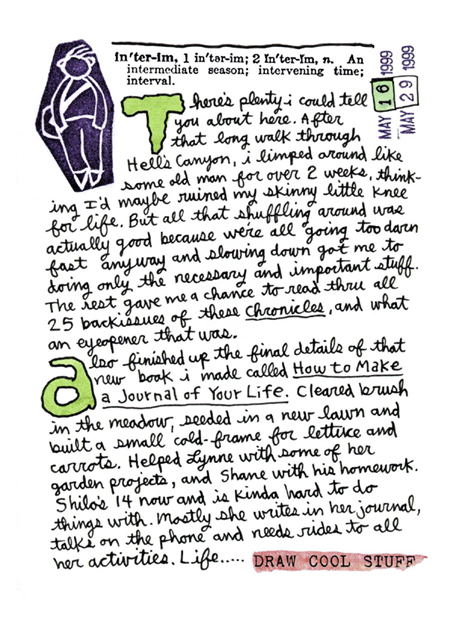 in'ter-im, 1 in'tər-im; 2 ĭn'ter-ĭm, n. An
intermediate season; intervening time;
interval.
MAY 16 1999
MAY 29 1999
There's plenty i could tell
you about here. After
that long walk through
Hell's Canyon, i limped around like
some old man for over 2 weeks, think-
ing I'd maybe ruined my skinny little knee
for life. But all that shuffling around was
actually good because we're all going too darn
fast anyway and slowing down got me to
doing only the necessary and important stuff.
The rest gave me a chance to read thru all
25 backissues of these Chronicles, and what
an eyeopener that was.
also finished up the final details of that
new book i made called How to Make
a Journal of Your Life. Cleared brush
in the meadow, seeded in a new lawn and
built a small cold-frame for lettuce and
carrots. Helped Lynne with some of her
garden projects, and Shane with his homework.
Shilo's 14 now and is kinda hard to do
things with. Mostly she writes in her journal,
talks on the phone and needs rides to all
her activities. Life.....
DRAW COOL STUFF